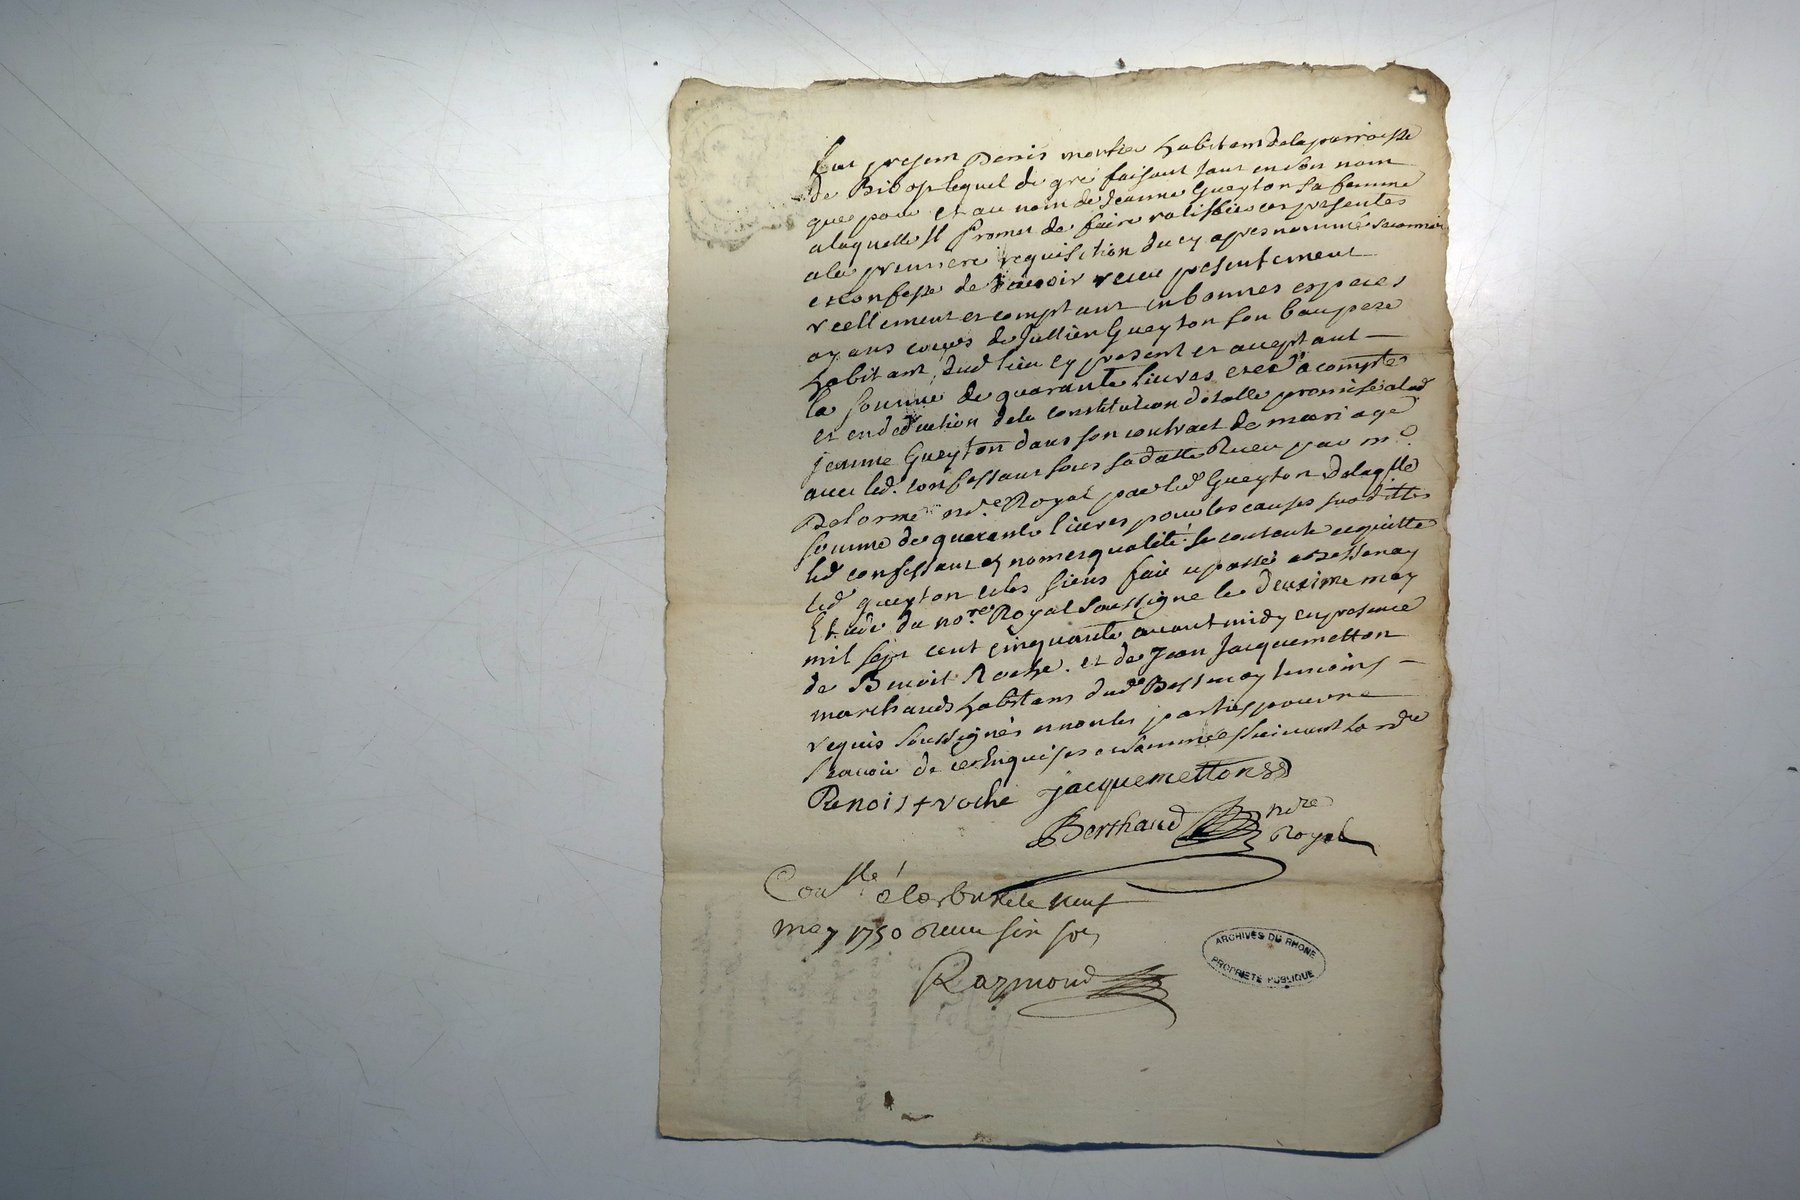 fut present Denis mortier habitant de la parroisse
de Bibost lequel de gré faisant tant en son nom
que pour et au nom de Jeanne Gueyton sa femme
a laquelle Il promet de faire ratiffier ces presentes
a la premiere requisition du cy apres nommé reconnoit
et confesse de avoir receu presentement
reellement et comptant en bonnes especes
ayans cours de Jullien Gueyton son beaupere
habitant dud lieu cy present et acceptant
la somme de quarante livres et ce a compte
et en deduction de la constitution dotalle promise a lad
jeanne Gueyton dans son contract de mariage
avec led. confessant sous sa datte Receu par me
Delorme nore Royal par led Gueyton de laqlle
somme de quarante livres pour les causes susdittes
led confessant ez noms et qualité se contente et quitte
led gueyton et les siens fait et passé a Bessenay
Etude du nore Royal soussigne le deuxime may
mil sept cent cinquante avant midy en presence
de Benoit Roche et de Jean Jacquemetton
marchands habitans dud Bessenay temoins
requis soussignés et non les parties pour ne
scavoir de ce Enquises et sommées suivant lordre
Benoist roche jacquemetton
Berthaud nore
Royal
Conllé a larbresle le neuf
may 1750 Receu six sols
Raymond
ARCHIVES DU RHONE
PROPRIETE PUBLIQUE